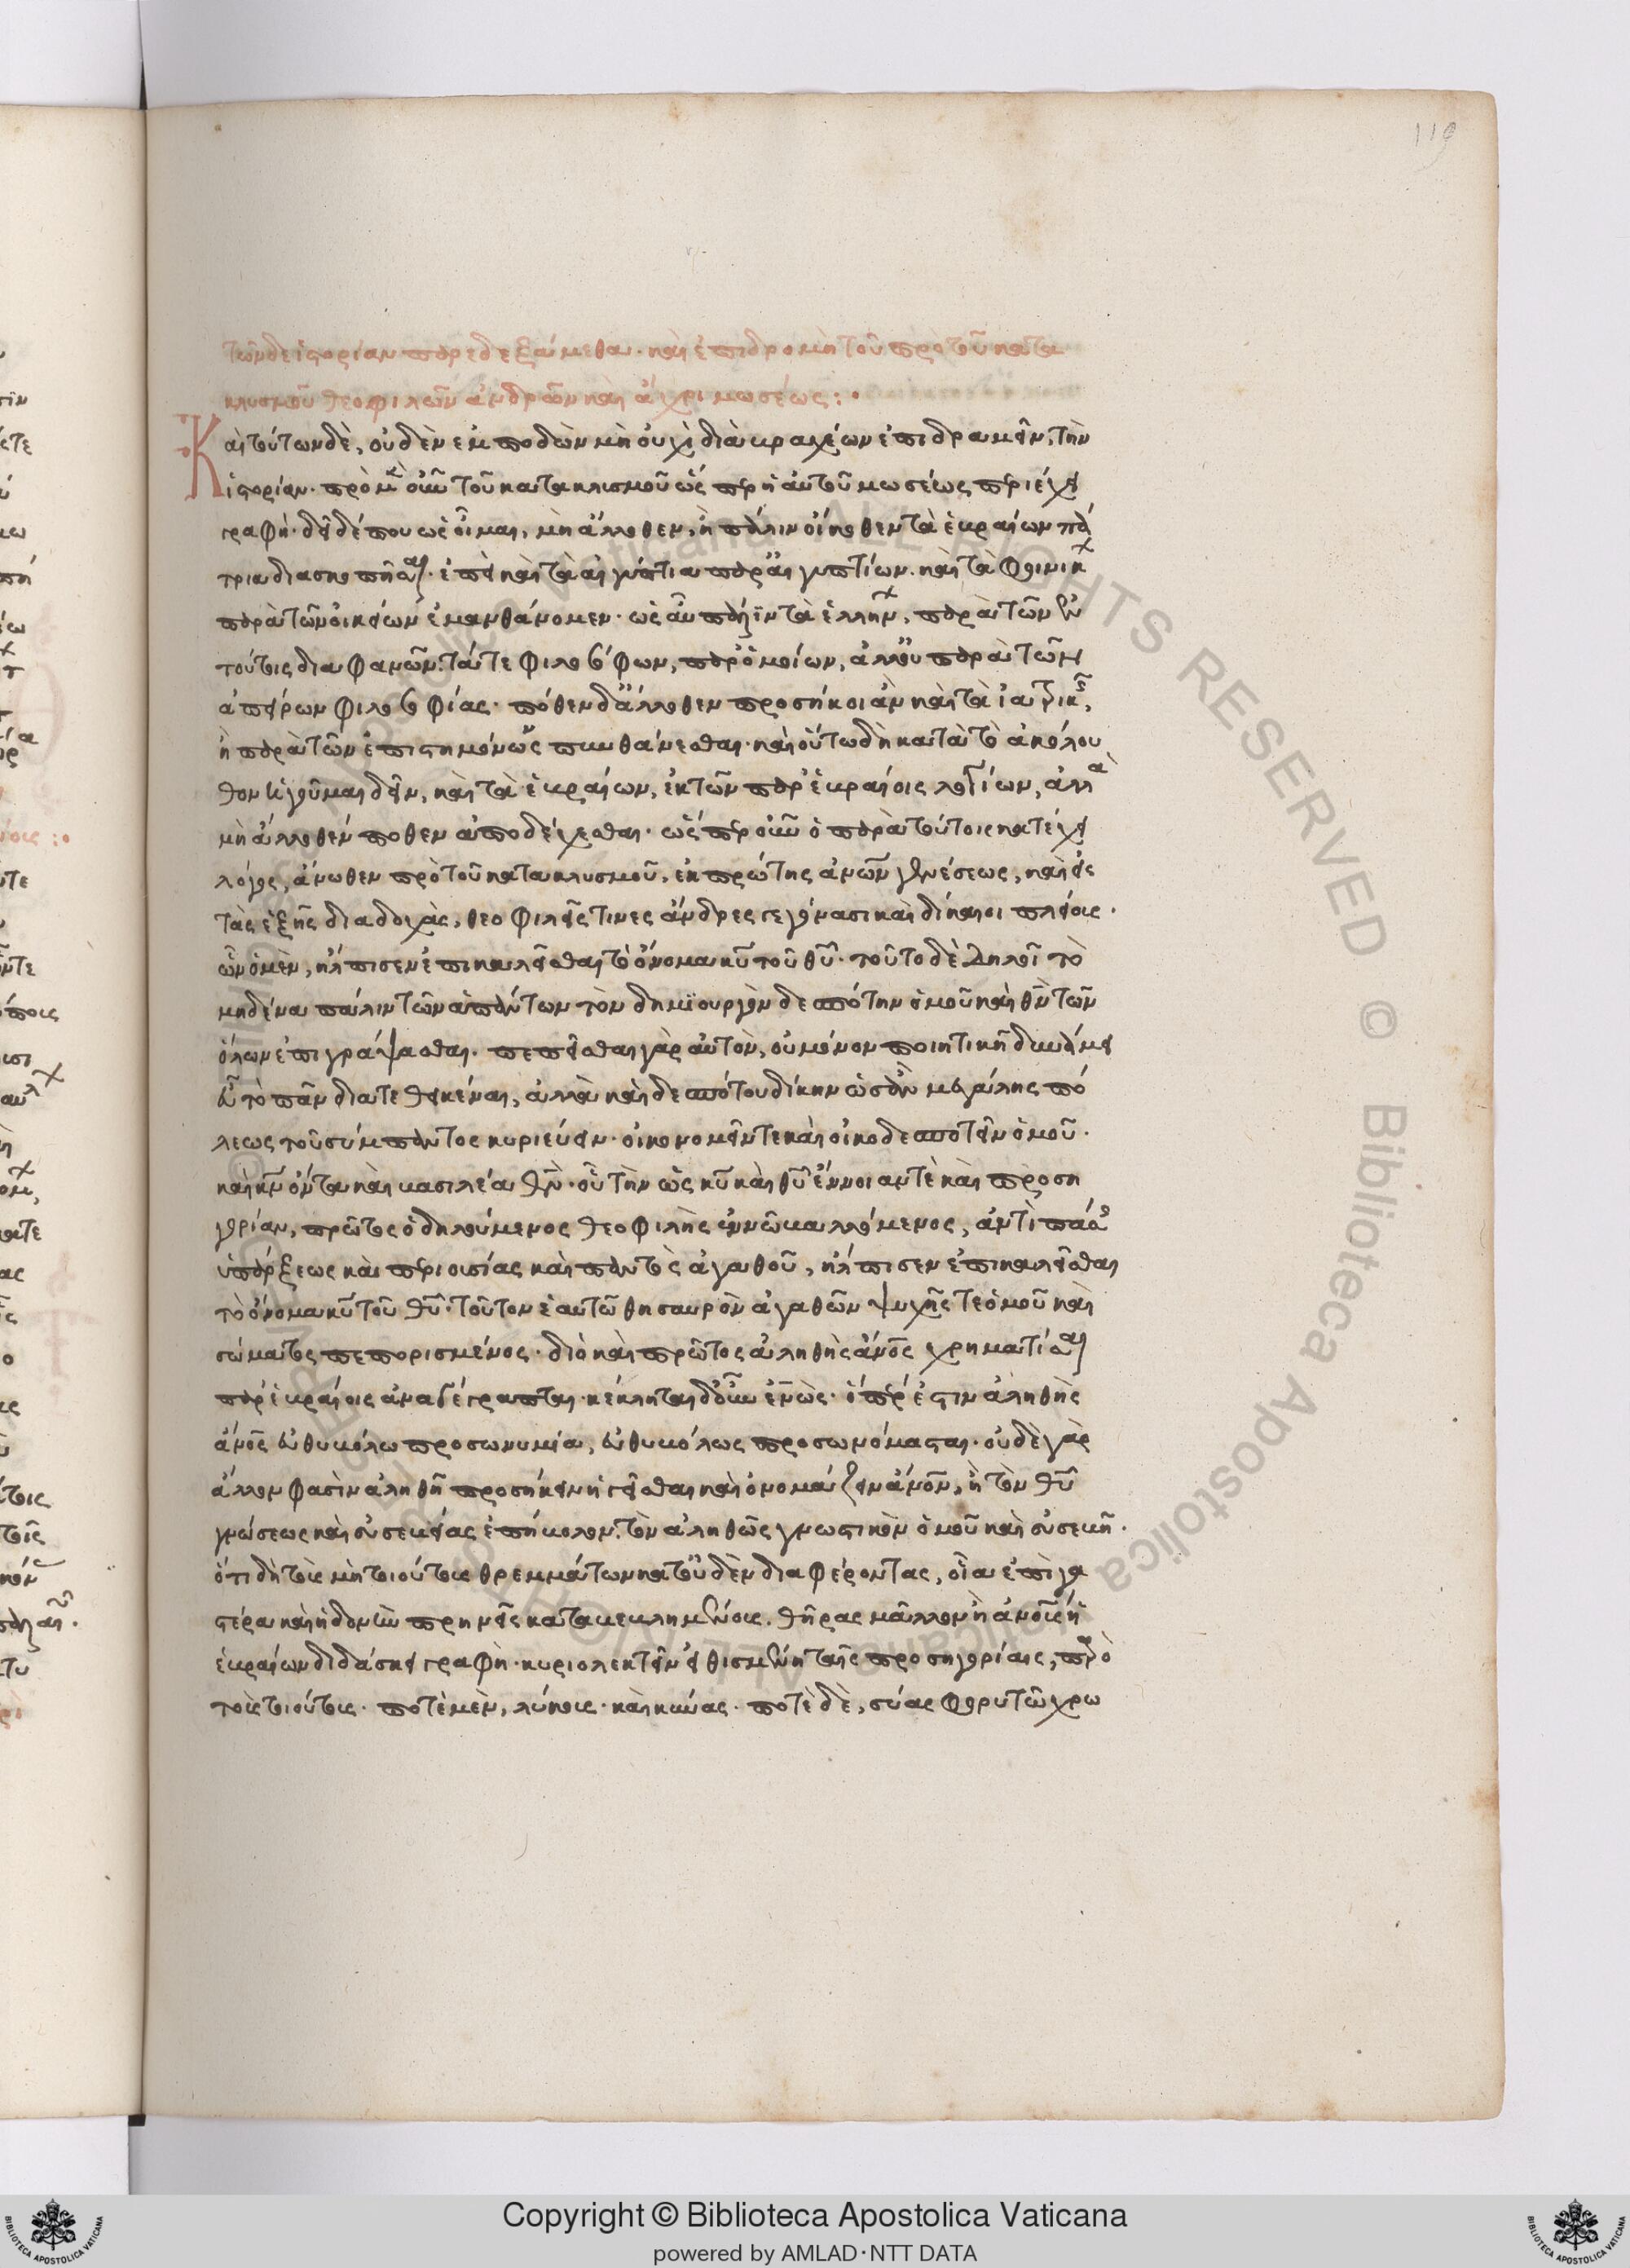 τῶν δὲ ἱστορίαν παρεδεξάμεθα· καὶ ἐπιδρομὴ τοῦ πρὸ τοῦ κατα
κλυσμοῦ θεοφιλῶν ἀνδρῶν καὶ ἄχρι μωσέως :·
Καὶ τούτων δὲ, οὐδὲν ἐμποδὼν μὴ οὐχὶ διὰ βραχέων ἐπιδραμεῖν, τὴν
ἱστορίαν· πρὸ μὲν οὖν τοῦ κατακλισμοῦ ὥς περ ἡ αὐτοῦ μωσέως περιέχει
γραφή· δεῖ δέ που ὡς οἶμαι, μὴ ἄλλοθεν, ἢ πάλιν οἴκοθεν τὰ ἑβραίων πά
τρια διασκοπῆσαι· ἐπεὶ καὶ τὰ αἰγύπτια παρ' αἰγυπτίων· καὶ τὰ φοινικ
παρὰ τῶν οἰκείων ἐμανθάνομεν· ὡς ἂν πάλιν τὰ ἑλλην, παρὰ τῶν ἐν
τούτοις διαφανῶν· τά τε φιλοσόφων, παρ' ὁμοίων, ἀλλ' οὐ παρὰ τῶν
ἀπείρων φιλοσοφίας· πόθεν δ' ἄλλοθεν προσήκοι ἂν καὶ τὰ ἰατρικ,
ἢ παρὰ τῶν ἐπιστημόνως πυνθάνεσθαι· καὶ οὕτω δὴ κατὰ τὸ ἀκόλου
θον ἡγοῦμαι δεῖν, καὶ τὰ ἑβραίων, ἐκ τῶν παρ' ἑβραίοις λογίων, ἀλλὰ
μὴ ἄλλοθέν ποθεν ἀποδείχεσθαι· ὥς περ οὖν ὁ παρὰ τούτοις κατέχει
λόγος, ἄνωθεν πρὸ τοῦ κατακλυσμοῦ, ἐκ πρώτης ἀνῶν γενέσεως, καὶ εἰς
τὰς ἑξῆς διαδοχὰς, θεοφιλεῖς τινες ἄνδρες γεγόνασι καὶ δίκαιοι πλείους·
ὧν ὁ μὲν, ἤλπισεν ἐπικαλεῖσθαι τὸ ὄνομα κῦ τοῦ θῦ· τοῦτο δὲ δηλοῖ τὸ
μηδένα πάλιν τῶν ἁπάντων τὸν δημϊουργὸν δεσπότην ὁμοῦ καὶ θν τῶν
ὅλων ἐπιγράψασθαι· πεπεῖσθαι γὰρ αὐτὸν, οὐ μόνον ποιητικῆ δυνάμει
εὖ τὸ πᾶν διατεθεικέναι, ἀλλὰ καὶ δεσπότου δίκην ὡσὰν μεγάλης πό
λεως τοῦ σύμπαντος κυριεύειν· οἰκονομεῖν τε καὶ οἰκοδεσποτεῖν ὁμοῦ·
καὶ κν ὄντα καὶ βασιλέα θν· οὗ τὴν ὡς κῦ καὶ θῦ ἔννοιαν τὲ καὶ προση
γορίαν, πρῶτος ὁ δηλούμενος θεοφιλὴς ἐννῶ βαλλόμενος, ἀντὶ πάσης
ὑπάρξεως καὶ περιουσίας καὶ παντὸς ἀγαθοῦ, ἤλπισεν ἐπικαλεῖσθαι
τὸ ὄνομα κῦ τοῦ θῦ· τοῦτον ἑαυτῶ θησαυρὸν ἀγαθῶν ψυχῆς τε ὁμοῦ καὶ
σώματος πεπορισμένος· διὸ καὶ πρῶτος ἀληθὴς ἄνος χρηματίσαι
παρ' ἑβραίοις ἀναγέγραπται· κέκληται δ' οὖν ἐνὼς· ὅπερ ἐστὶν ἀληθὴς
ἄνος εὐθυβόλω προσωνυμία, εὐθυβόλως προσωνόμασται· οὐδὲ γὰρ
ἄλλον φασὶν ἀληθῆ προσήκειν ἡγεῖσθαι καὶ ὀνομάζειν ἄνον, ἢ τὸν θῦ
γνώσεως καὶ εὐσεβείας ἐπήβολον· τὸν ἀληθῶς γνωστικὸν ὁμοῦ καὶ εὐσεβῆ·
ὅτι δὴ τοὺς μὴ τοιούτους θρεμμάτων κατ' οὐδὲν διαφέροντας, οἷα ἐπὶ γα
στέρα καὶ ἡδονὴν πρηνεῖς κατακεκλημένους· θῆρας μᾶλλον ἢ ἄνους ἡ
ἑβραίων διδάσκει γραφὴ· κυριολεκτεῖν εἰθισμένη ταῖς προσηγορίαις, παρ' ὃ
τοὺς τοιούτους· ποτὲ μὲν, λύκους· καὶ κύνας· ποτὲ δὲ, σύας φορυτῶ χρω